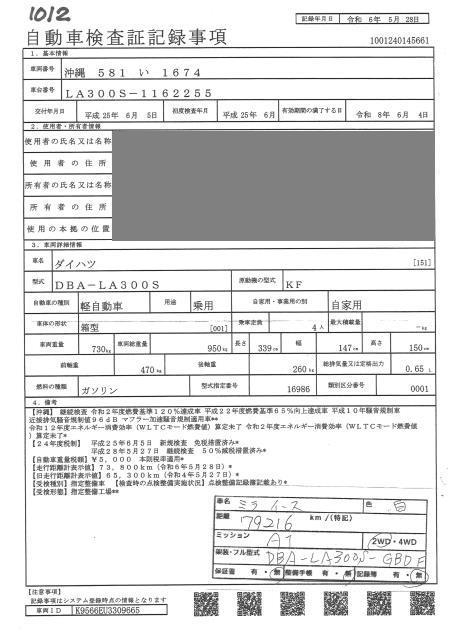 1012
記録年月日 令和 6年 5月 28日
自動車検査証記録事項
1001240145661
1．基本情報
車両番号 沖縄 581 い 1674
車台番号 LA300S-1162255
交付年月日 平成 25年 6月 5日 初度検査年月 平成 25年 6月 有効期間の満了する日 令和 8年 6月 4日
2．使用者・所有者情報
使用者の氏名又は名称
使用者の住所
所有者の氏名又は名称
所有者の住所
使用の本拠の位置
3．車両詳細情報
車名 ダイハツ [151]
型式 DBA-LA300S 原動機の型式 KF
自動車の種別 軽自動車 用途 乗用 自家用・事業用の別 自家用
車体の形状 箱型 [001] 乗車定員 4人 最大積載量 -kg
車両重量 730kg 車両総重量 950kg 長さ 339cm 幅 147cm 高さ 150cm
前軸重 470kg 後軸重 260kg 総排気量又は定格出力 0.65 L
燃料の種類 ガソリン 型式指定番号 16986 類別区分番号 0001
4．備考
【沖縄】 継続検査 令和2年度燃費基準120％達成車 平成22年度燃費基準65％向上達成車 平成10年騒音規制車
近接排気騒音規制値96dB マフラー加速騒音規制適用車**
令和12年度エネルギー消費効率（WLTCモード燃費値）算定未了 令和2年度エネルギー消費効率（WLTCモード燃費値
）算定未了*
【24年度税制】 平成25年6月5日 新規検査 免税措置済み*
平成28年5月27日 継続検査 50％減税措置済み*
【自動車重量税額】￥5,000 本則税率適用*
【走行距離計表示値】73,800km（令和6年5月28日）*
【旧走行距離計表示値】65,300km（令和4年5月27日）*
【受検種別】指定整備車 【検査時の点検整備実施状況】点検整備記録簿記載あり*
【受検形態】指定整備工場**
車名 ミライース 色 白
距離 79216 km／（特記）
ミッション AT 2WD・4WD
架装・フル型式 DBA-LA300S-GBDF
保証書 有・無 整備手帳 有・無 記録簿 有・無
【注意事項】
記録事項はシステム登録時点の情報となります
車両ID K9566EU3309665